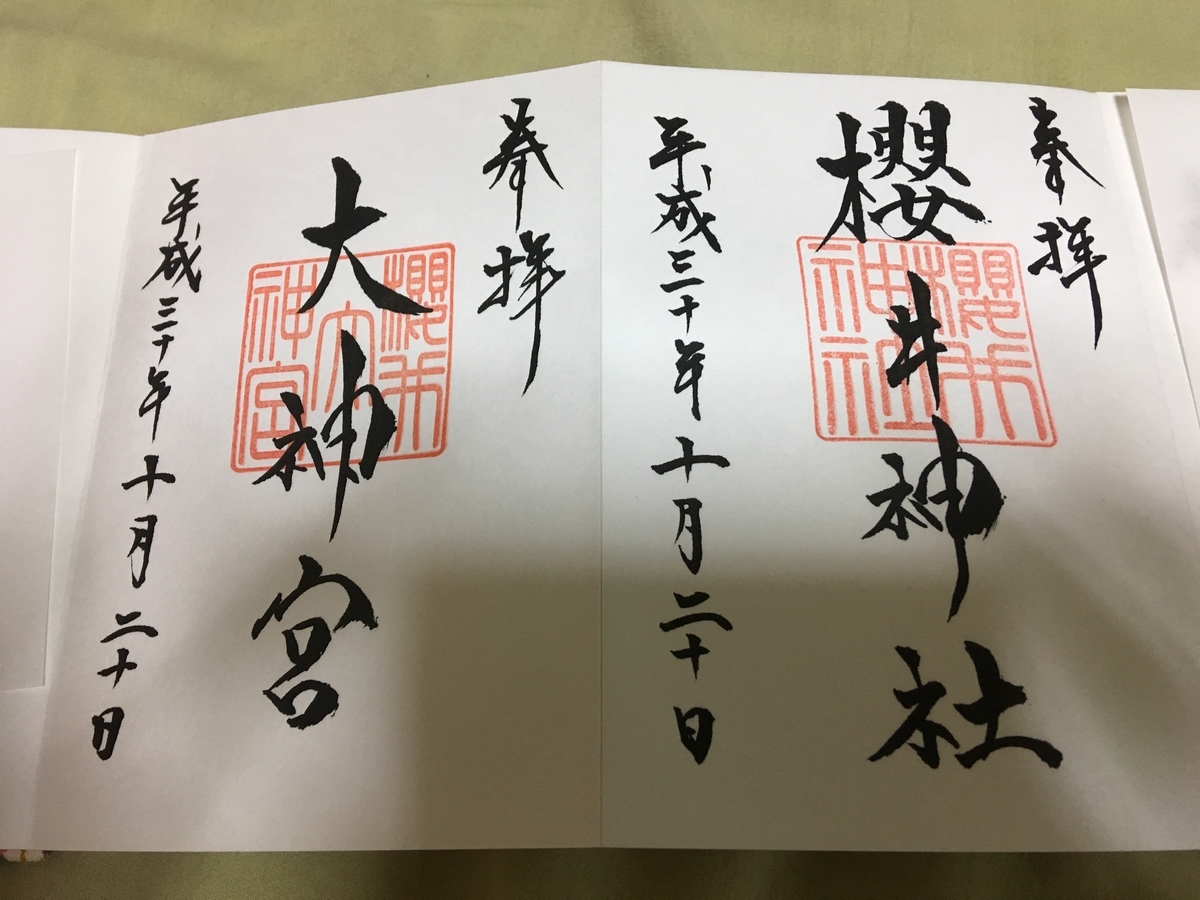 奉拝
櫻井神社
櫻井神社
平成三十年十月二十日
奉拝
大神宮
櫻井大神宮
平成三十年十月二十日